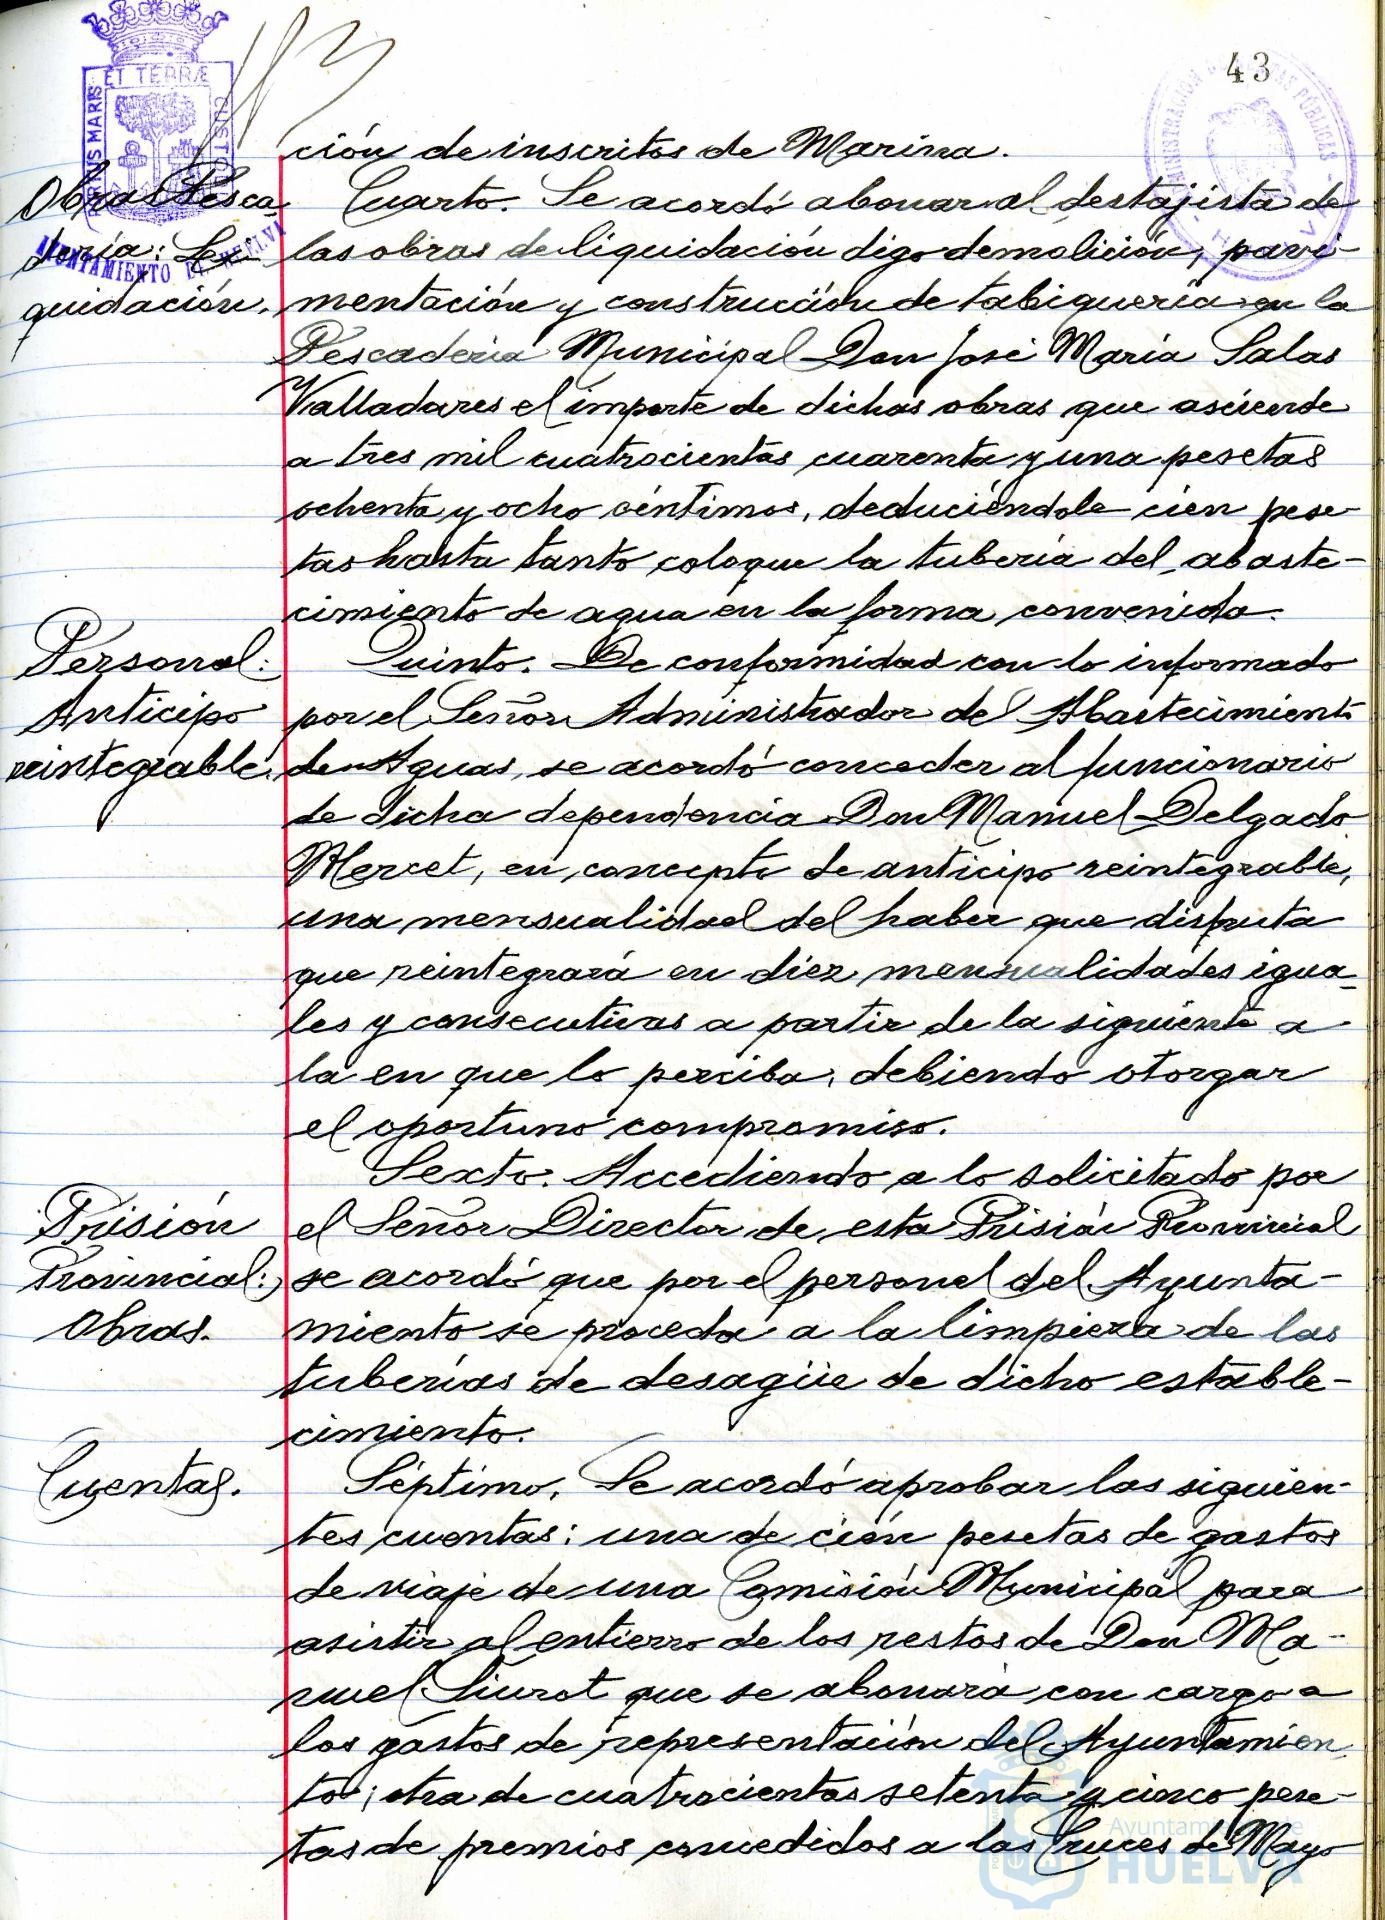 43
ción de inscritos de Marina.
Obras Pesca-
dería: Li-
quidación.
Cuarto. Se acordó abonar al destajista de
las obras de liquidación digo demolición, pavi-
mentación y construcción de tabiquería en la
Pescadería Municipal Don José María Salas
Valladares el importe de dichas obras que asciende
a tres mil cuatrocientas cuarenta y una pesetas
ochenta y ocho céntimos, deduciéndole cien pese-
tas hasta tanto coloque la tubería del abaste-
cimiento de agua en la forma convenida.
Personal:
Anticipo
reintegrable.
Quinto. De conformidad con lo informado
por el Señor Administrador del Abastecimiento
de Aguas, se acordó conceder al funcionario
de dicha dependencia Don Manuel Delgado
Mercet, en concepto de anticipo reintegrable,
una mensualidad del haber que disfruta
que reintegrará en diez mensualidades igua-
les y consecutivas a partir de la siguiente a
la en que lo perciba, debiendo otorgar
el oportuno compromiso.
Prisión
Provincial:
Obras.
Sexto. Accediendo a lo solicitado por
el Señor Director de esta Prisión Provincial
se acordó que por el personal del Ayunta-
miento se proceda a la limpieza de las
tuberías de desagüe de dicho estable-
cimiento.
Cuentas.
Séptimo. Se acordó aprobar las siguien-
tes cuentas: una de cien pesetas de gastos
de viaje de una Comisión Municipal para
asistir al entierro de los restos de Don Ma-
nuel Siurot que se abonará con cargo a
los gastos de representación del Ayuntamien-
to; otra de cuatrocientas setenta y cinco pese-
tas de premios concedidos a las Cruces de Mayo
PORTUS MARIS ET TERRAE CUSTODIA
AYUNTAMIENTO DE HUELVA
Ayuntamiento de
HUELVA